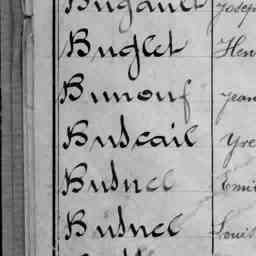 Bugault Josep
Buglet Hen
Bunouf Jean
Buscail Yve
Busnel Emil
Busnel Louis